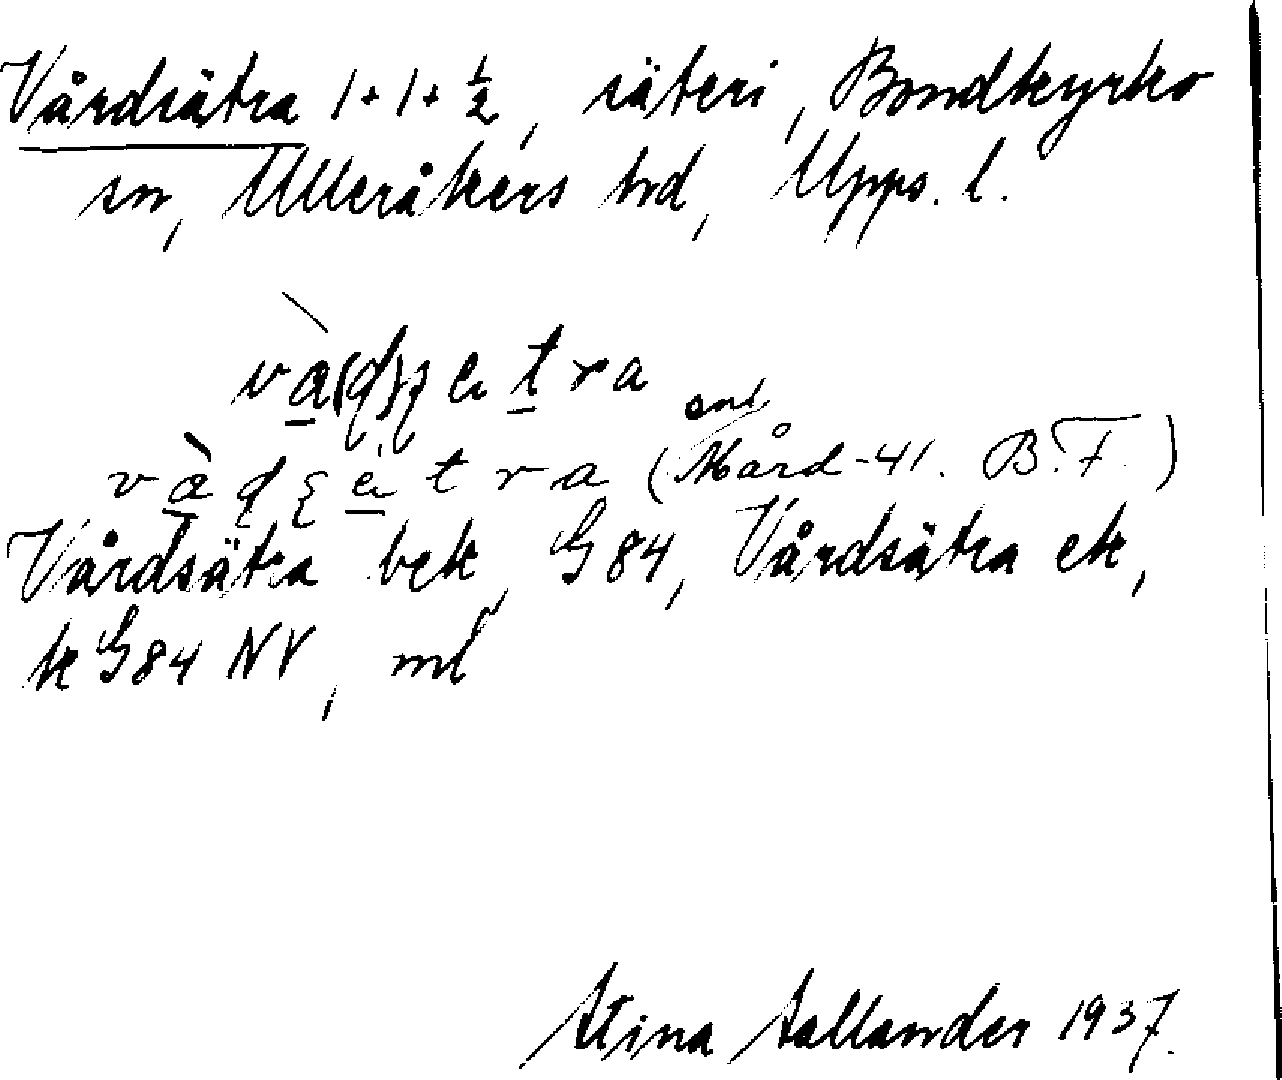 Vårdsätra 1+1+½, säteri, Bondkyrko
sn, Ulleråkers hd, Upps. l.
và(ɖ)ʂätra
vàɖʂätra (enl Mård-41. B.F.)
Vårdsätra bek, G84, Vårdsätra ek,
k G84 NV, ml
Stina Sallander 1937.